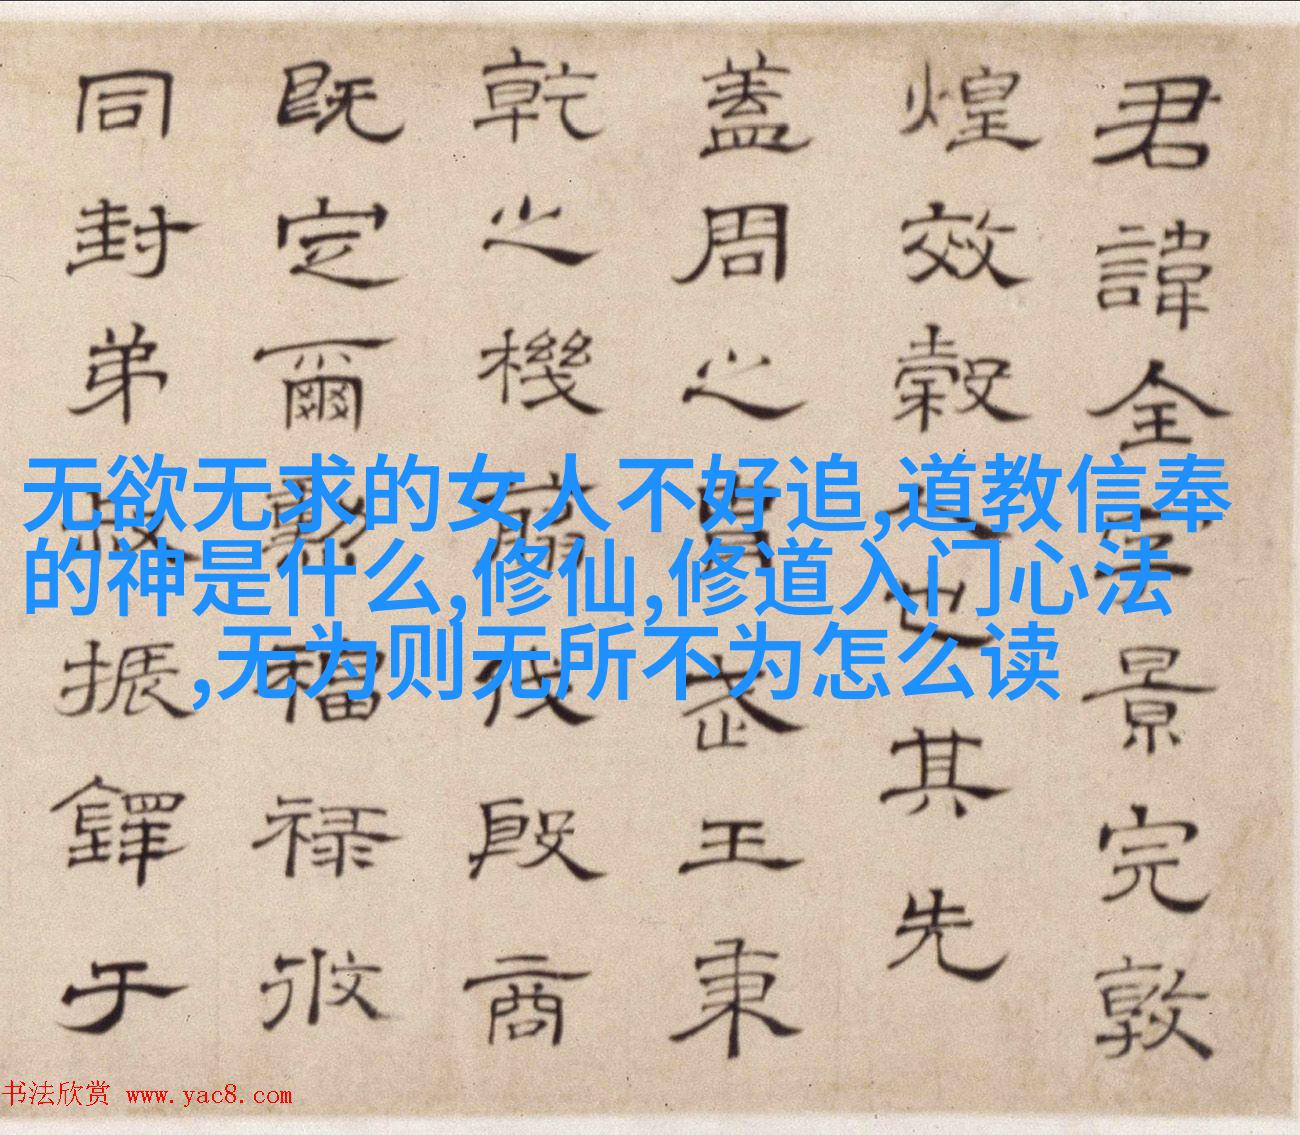 君諱全字景完敦
煌效穀人也其先
蓋周之胄武王秉
乾之機翦伐殷商
既定爾勳福祿攸
同封弟叔振鐸于
无欲无求的女人不好追,道教信奉
的神是什么,修仙,修道入门心法
,无为则无所不为怎么读
书法欣赏 www.yac8.com